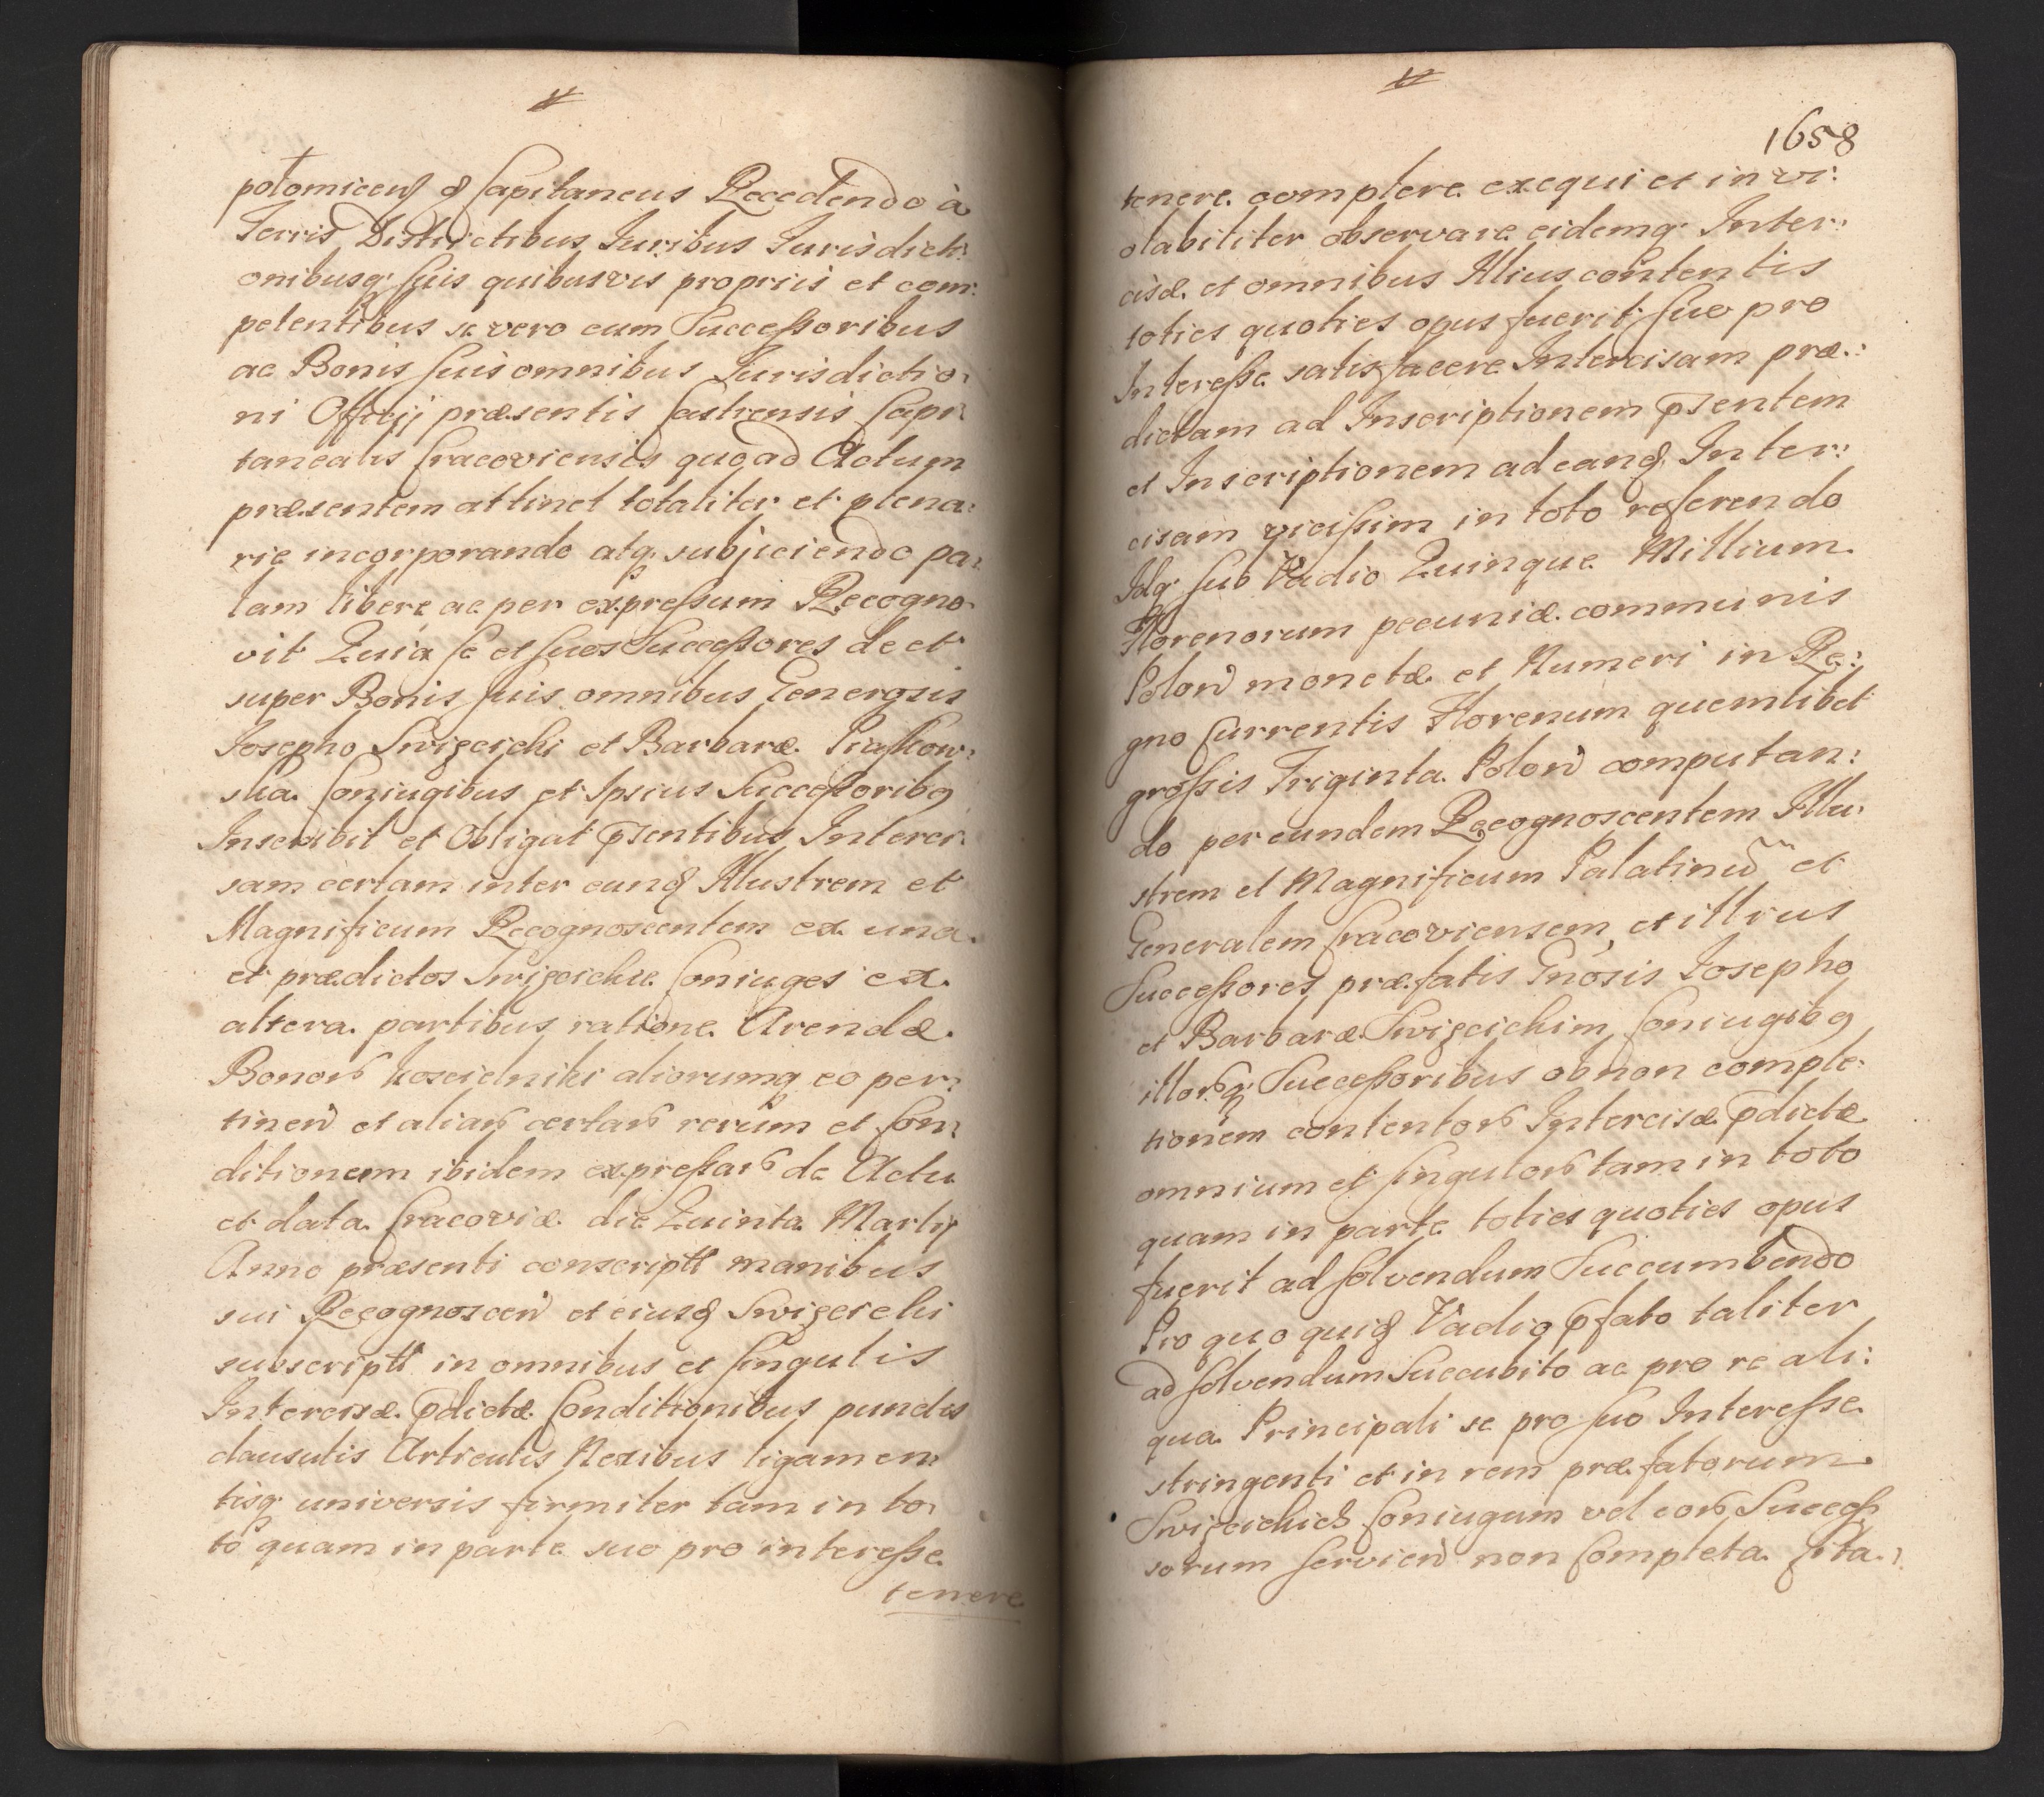 potomicens & Capitaneus Recedendo à
Terris Districtibus Iuribus Iurisdicti:
onibusq suis quibusvis proprijs et com:
petentibus se vero cum Successoribus
ac Bonis suis omnibus Iurisdictio:
ni Officij præsentis Castrensis Capi:
tanealis Cracoviensis quoad Actum
præsentem attinet totaliter et plena:
rie incorporando atq subjiciendo pa:
lam libere ac per expressum Recogno:
vit Quia se et suos Successores de et
super Bonis suis omnibus Generosis
Iosepho Swizeicki et Barbaræ
ska Coniugibus et Ipsius Successoribq
Inscribit et Obligat pсentibus Interci:
sam certam inter eundq Illustrem et
Magnificum Recognoscentem ex una
et prædictos Swizeickie Coniuges ex
altera partibus ratione Arendæ
Bonorꝭ Koscielniki aliorumq eo per:
tineñ et aliarꝭ certarꝭ rerum et Con:
ditionem ibidem expressarꝭ de Actu
et data Cracoviæ die Quinta Martij
Anno præsenti conscriptt manibus
sui Recognosceñ et eiusd Swizeicki
subscriptt in omnibus et singulis
Intercisæ pdictæ Conditionibus punctis
clausulis Articulis Nexibus ligamen:
tisq universis firmiter tam in to:
to quam in parte suo pro interesse
tenere
1658
tenere complere exequi et invi:
olabiliter observare eidemq Inter:
cisæ et omnibus Illius contentis
toties quoties opus fuerit suo pro
Interesse satisfacere Intercisam præ:
dictam ad Inscriptionem psentem
et Inscriptionem ad eand Inter:
cisam vicissim in toto referendo
Idq sub Vadio Quinque Millium
Florenorum pecuniæ communis
Poloñ monetæ et Numeri in Re:
gno Currentis Florenum quemlibet
grossis Triginta Poloñ computan:
do per eundem Recognoscentem Illu:
strem et Magnificum Palatinũ et
Generalem Cracoviensem, et illius
Successores præfatis Gnosis Iosepho
et Barbaræ Swizeickim Coniugibq
illorꝭq Successoribus ob non comple:
tionem contentorꝭ Intercisæ pdictæ
omnium et singulorꝭ tam in toto
quam in parte toties quoties opus
fuerit ad solvendum Succumbendo
Pro quo quid Vadio pfato taliter
ad solvendum Succubito ac pro re ali:
qua Principali se pro suo Interesse
stringenti et in rem præfatorum
Swizeickich Coniugum vel eorꝭ Succes
sorum servieñ non Completa Cita: